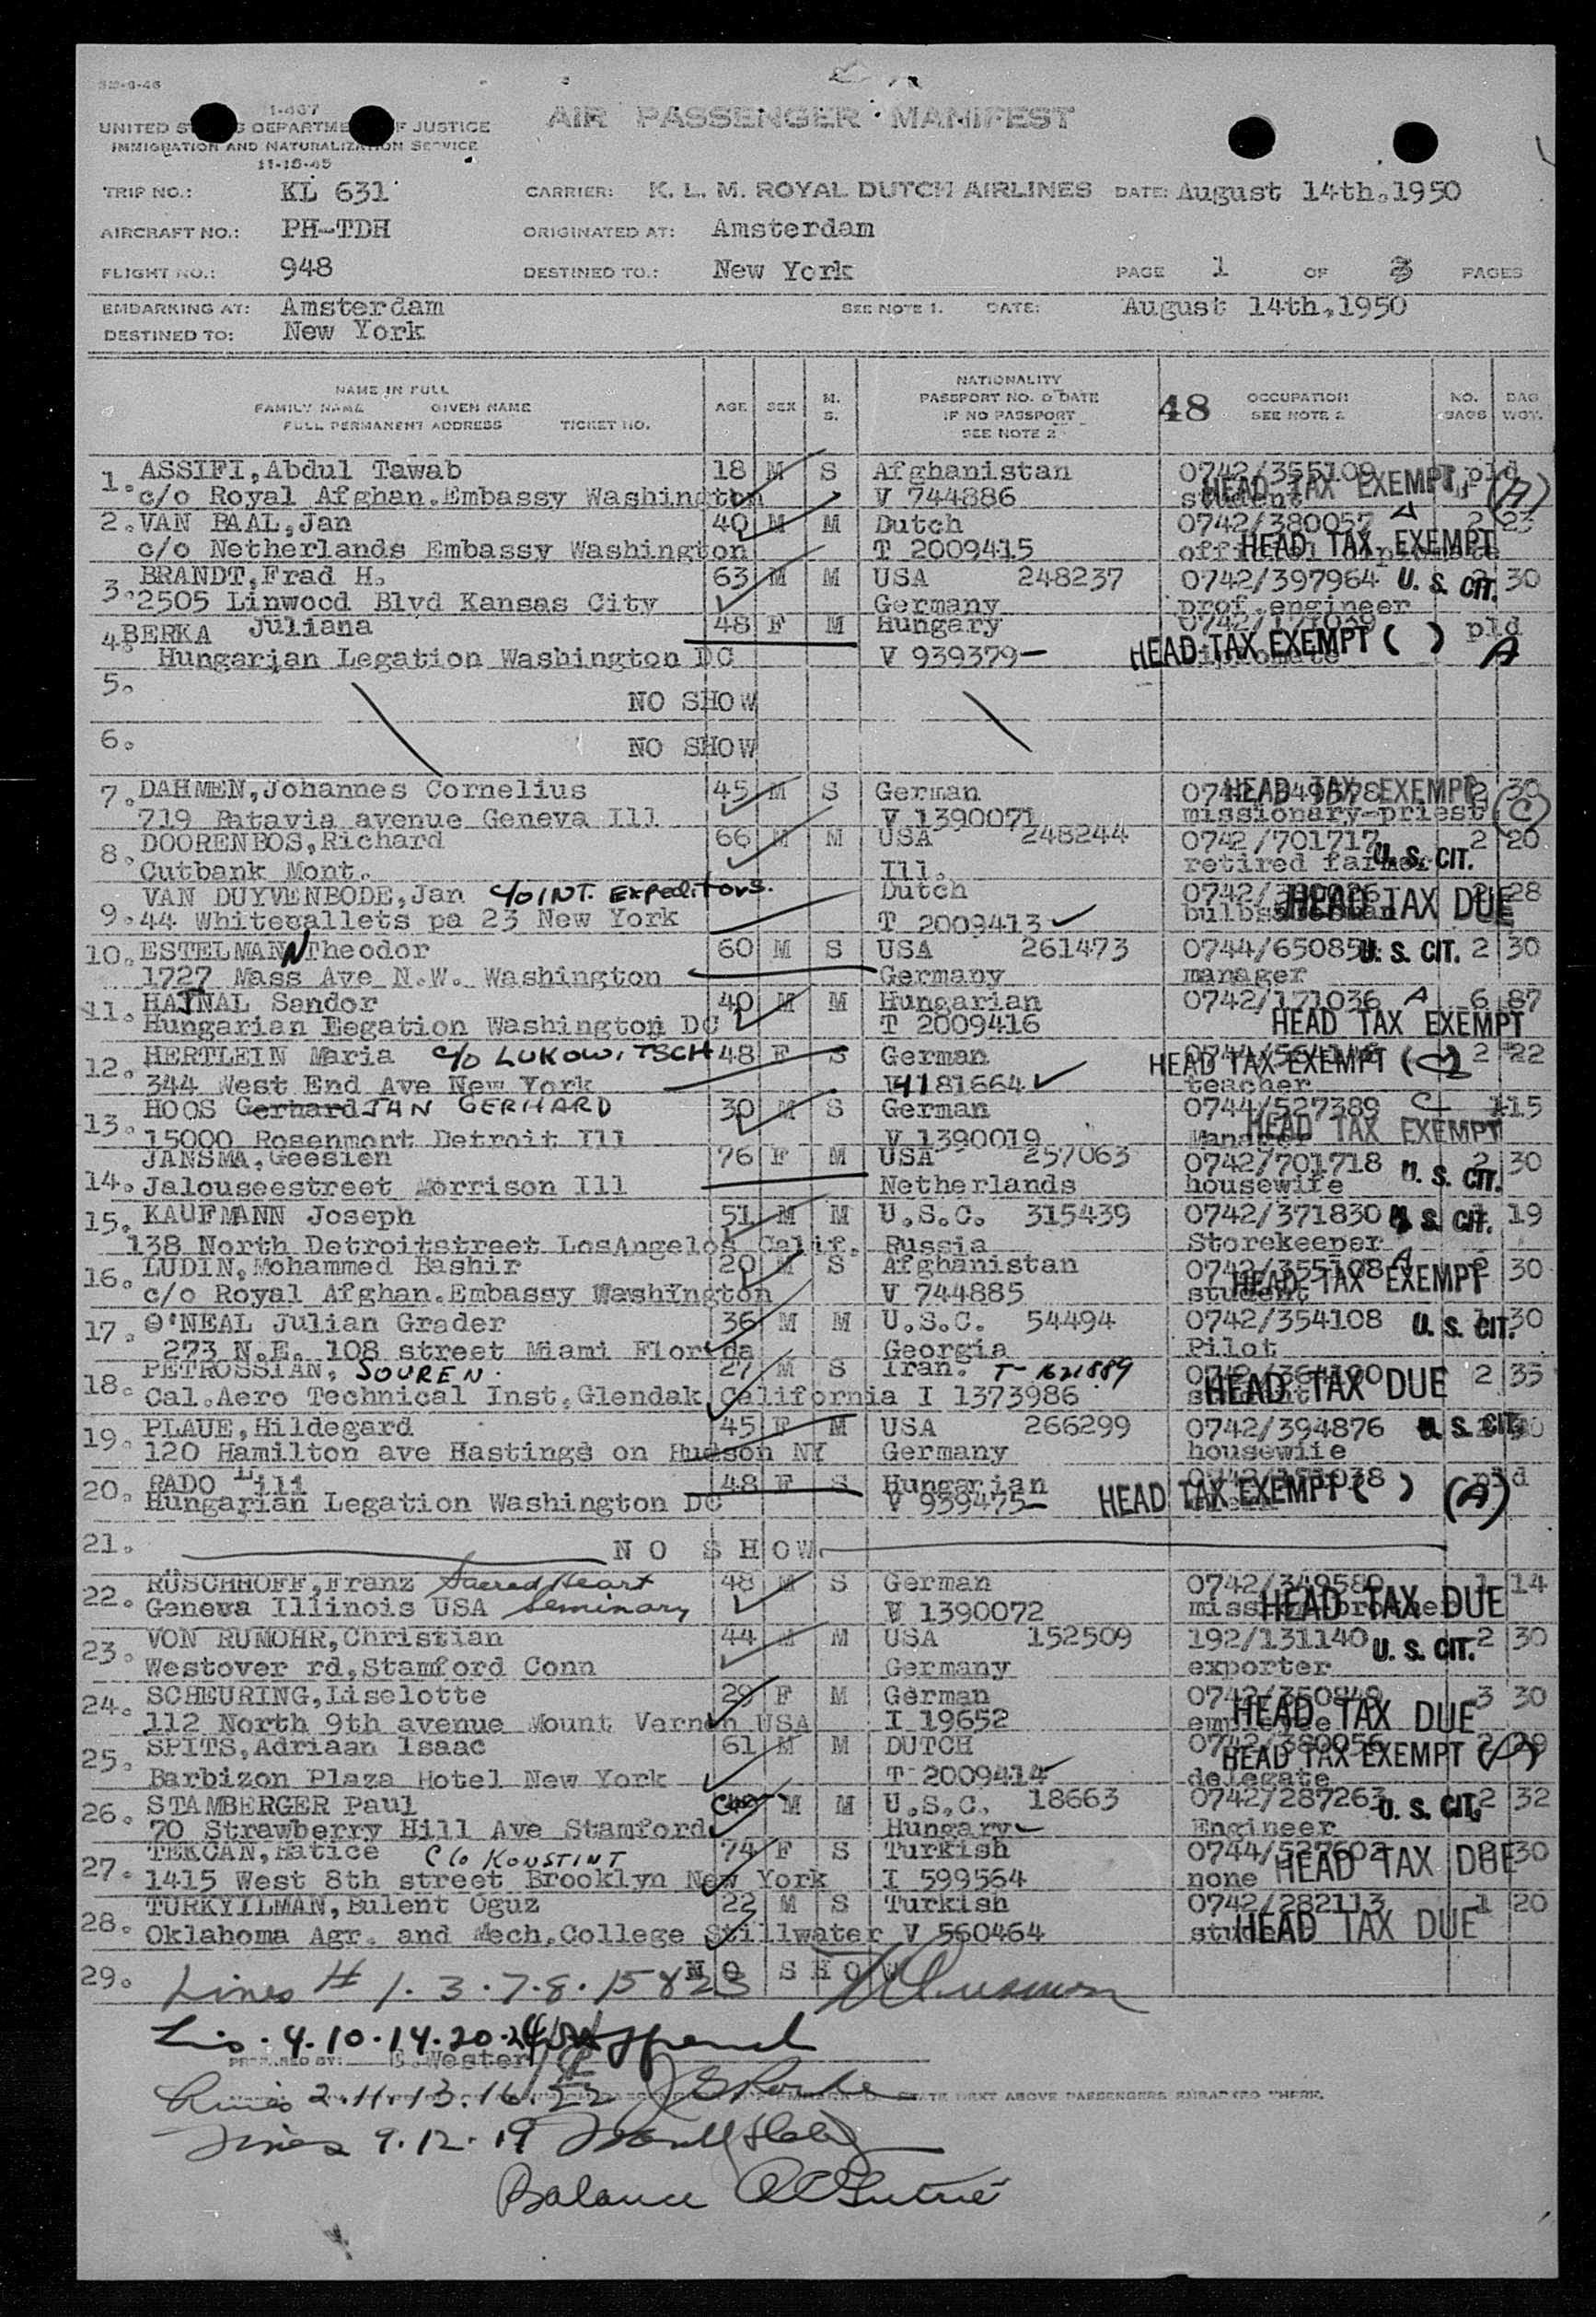 1-467
UNITED STATES DEPARTMENT OF JUSTICE
IMMIGRATION AND NATURALIZATION SERVICE
11-15-45
AIR PASSENGER MANIFEST
TRIP NO.: KL 631 CARRIER: K. L. M. ROYAL DUTCH AIRLINES DATE: August 14th.1950
AIRCRAFT NO.: PH-TDH ORIGINATED AT: Amsterdam
FLIGHT NO.: 948 DESTINED TO.: New York PAGE 1 OF 3 PAGES
EMBARKING AT: Amsterdam SEE NOTE 1. DATE: August 14th.1950
DESTINED TO: New York
NAME IN FULL
FAMILY NAME GIVEN NAME
FULL PERMANENT ADDRESS TICKET NO.
AGE SEX M. S.
NATIONALITY
PASSPORT NO. & DATE
IF NO PASSPORT
SEE NOTE 2
48 OCCUPATION
SEE NOTE 2
NO. BAGS BAG WGT.
1. ASSIFI,Abdul Tawab 18 M S Afghanistan 0742/355109 pld
c/o Royal Afghan.Embassy Washington V 744886 student HEAD TAX EXEMPT (A)
2. VAN BAAL,Jan 40 M M Dutch 0742/380057 A 2 23
c/o Netherlands Embassy Washington T 2009415 HEAD TAX EXEMPT
3. BRANDT,Frad H. 63 M M USA 248237 0742/397964 U. S. CIT. 30
2505 Linwood Blvd Kansas City Germany prof.engineer
4. BERKA Juliana 48 F M Hungary 0742/171039 pld
Hungarian Legation Washington DC V 939379 HEAD TAX EXEMPT ( ) A
5. NO SHOW
6. NO SHOW
7. DAHMEN,Johannes Cornelius 45 M S German HEAD TAX EXEMPT 2 30
719 Batavia avenue Geneva Ill V 1390071 missionary-priest (C)
8. DOORENBOS,Richard 66 M M USA 248244 0742/701717 2 20
Cutbank Mont. Ill. retired farmer U. S. CIT.
9. VAN DUYVENBODE,Jan c/o INT. Expeditors. Dutch 28
44 Whitegallets pa 23 New York T 2009413 HEAD TAX DUE
10. ESTELMANN Theodor 60 M S USA 261473 0744/65085 U. S. CIT. 2 30
1727 Mass Ave N.W. Washington Germany manager
11. HAJNAL Sandor 40 M M Hungarian 0742/171036 A 6 87
Hungarian Legation Washington DC T 2009416 HEAD TAX EXEMPT
12. HERTLEIN Maria c/o LUKOWITSCH 48 F S German HEAD TAX EXEMPT (C) 2 22
344 West End Ave New York V 4181664 teacher
13. HOOS Gerhard JAN GERHARD 30 M S German 0744/527389 C 1 15
15000 Rosenmont Detroit Ill V 1390019 Manager HEAD TAX EXEMPT
14. JANSMA,Geesien 76 F M USA 257063 0742/701718 2 30
Jalouseestreet Morrison Ill Netherlands housewife U. S. CIT.
15. KAUFMANN Joseph 51 M M U.S.C. 315439 0742/371830 U. S. CIT. 19
138 North Detroitstreet LosAngelos Calif. Russia Storekeeper
16. LUDIN,Mohammed Bashir 20 M S Afghanistan 0742/355108 A 2 30
c/o Royal Afghan.Embassy Washington V 744885 student HEAD TAX EXEMPT
17. O'NEAL Julian Grader 36 M M U.S.C. 54494 0742/354108 U. S. CIT. 30
273 N.E. 108 street Miami Florida Georgia Pilot
18. PETROSSIAN, SOUREN. 27 M S Iran. T-1621889 2 35
Cal.Aero Technical Inst.Glendak California I 1373986 HEAD TAX DUE
19. PLAUE,Hildegard 45 F M USA 266299 0742/394876 U. S. CIT.
120 Hamilton ave Hastings on Hudson NY Germany housewife
20. RADO Lili 48 F S Hungarian pld
Hungarian Legation Washington DC V 939475 HEAD TAX EXEMPT ( ) (A)
21. NO SHOW
22. RÜSCHHOFF,Franz Sacred Heart 48 M S German 0742/349580 1 14
Geneva Illinois USA Seminary V 1390072 HEAD TAX DUE
23. VON RUMOHR,Christian 44 M M USA 152509 192/131140 U. S. CIT. 2 30
Westover rd,Stamford Conn Germany exporter
24. SCHEURING,Liselotte 29 F M German 3 30
112 North 9th avenue Mount Vernon USA I 19652 HEAD TAX DUE
25. SPITS,Adriaan Isaac 61 M M DUTCH 0742/380056 29
Barbizon Plaza Hotel New York T 2009414 delegate HEAD TAX EXEMPT (A)
26. STAMBERGER Paul 49 M M U.S.C. 18663 0742/287263 U. S. CIT. 2 32
70 Strawberry Hill Ave Stamford Hungary Engineer
27. TEKCAN,Hatice c/o KONSTINT 74 F S Turkish 0744/527602 30
1415 West 8th street Brooklyn New York I 599564 none HEAD TAX DUE
28. TURKYILMAN,Bulent Oguz 22 M S Turkish 0742/282113 1 20
Oklahoma Agr. and Mech.College Stillwater V 560464 HEAD TAX DUE
29. NO SHOW
Lines # 1. 3. 7. 8. 15 & 23
4. 10. 14. 20. 24
PREPARED BY: E.Wester
Lines 2. 11. 13. 16. 22
STATE NEXT ABOVE PASSENGERS EMBARKED THERE.
Lines 9. 12. 19
Balance